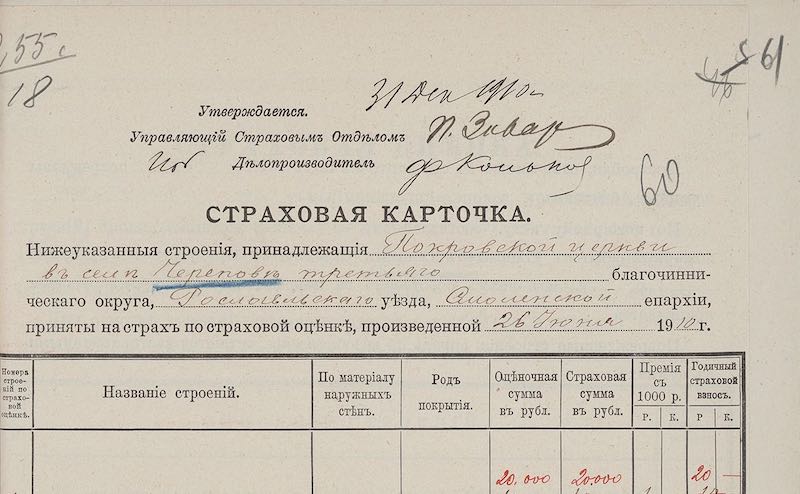 ,55 г.
18
61
31 Дек 1910
Утверждается.
Управляющій Страховымъ Отдѣломъ
Дѣлопроизводитель
60
СТРАХОВАЯ КАРТОЧКА.
Нижеуказанныя строенія, принадлежащія Покровской церкви
въ селѣ Череповѣ третьяго благочинни-
ческаго округа, Рославльскаго уѣзда, Смоленской епархіи,
приняты на страхъ по страховой оцѣнкѣ, произведенной 26 Іюня 1910 г.
Номера строе-ній по страхо-вой оцѣнкѣ.
Названіе строеній.
По матеріалу наружныхъ стѣнъ.
Родъ покрытія.
Оцѣночная сумма въ рубл.
Страховая сумма въ рубл.
Премія съ 1000 р.
Годичный страховой взносъ.
Р. К. Р К.
20.000 20000 20 —